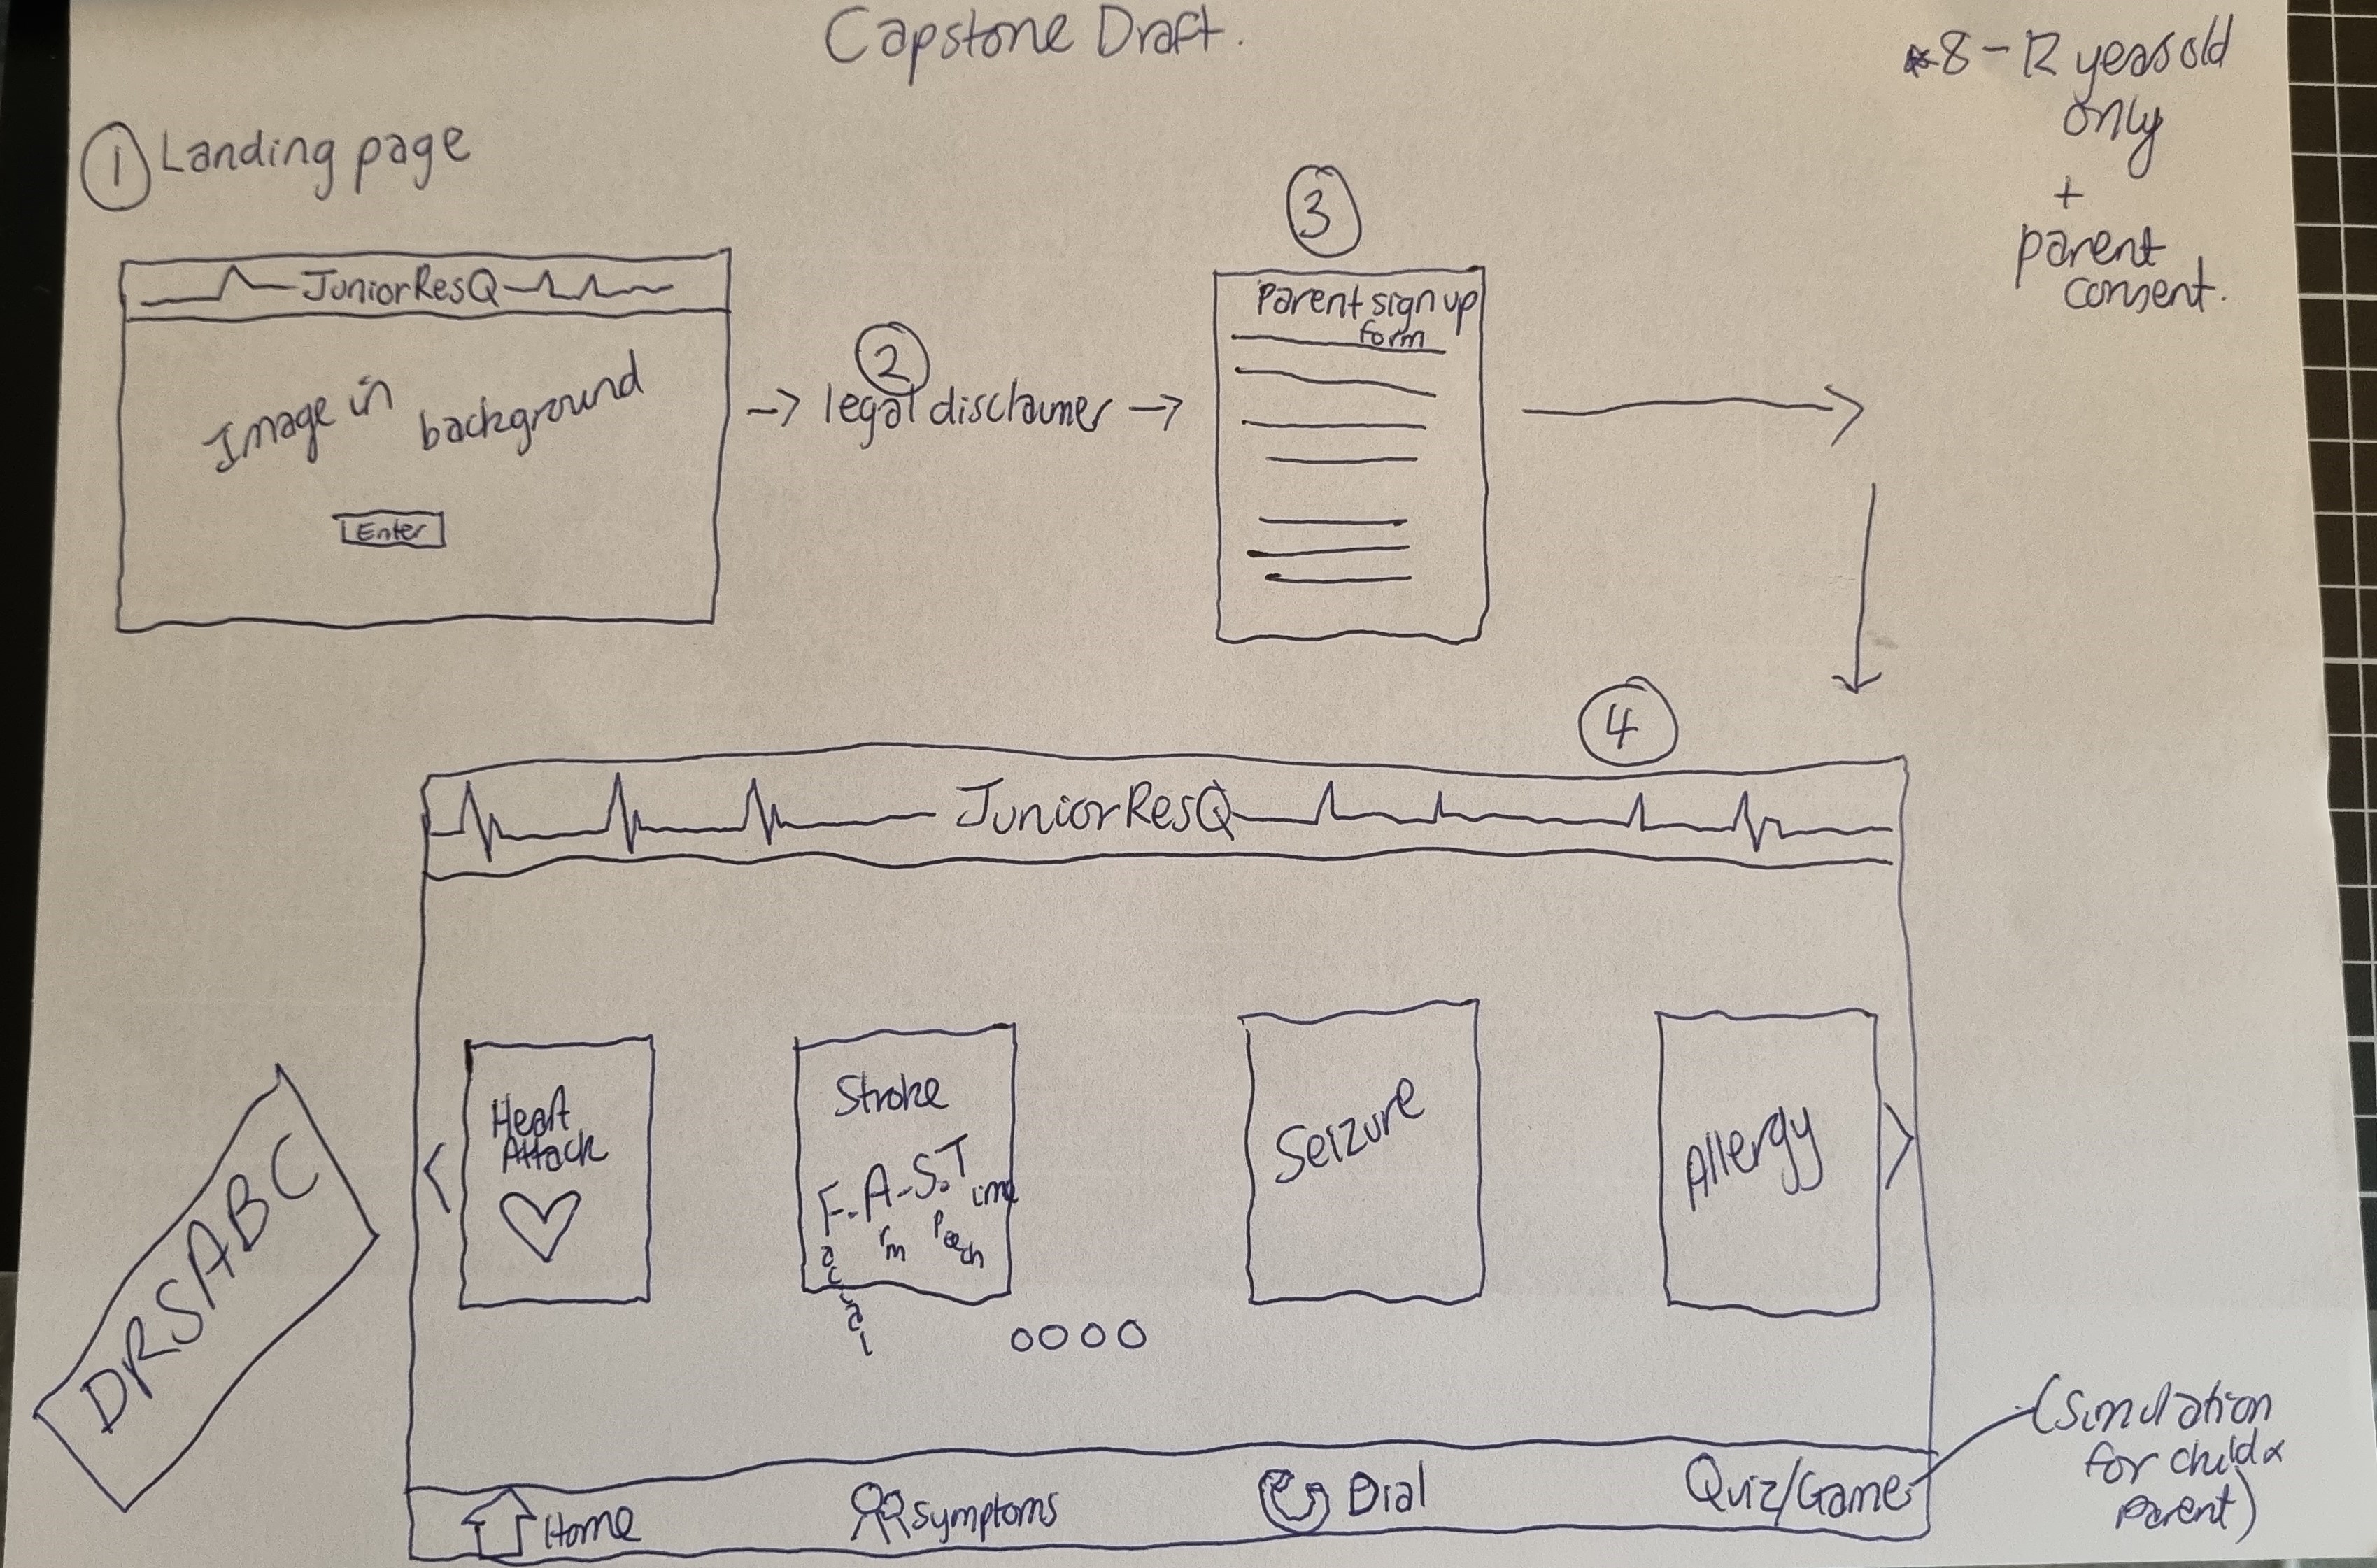 Capstone Draft.
*8-12 years old
only
+
parent
consent.
① Landing page
JuniorResQ
Image in background
Enter
②
→ legal disclaimer →
③
Parent sign up
form
④
JuniorResQ
Heart
Attack
Stroke
F.A.S.T
acial
rm
peech
ime
Seizure
Allergy
DRSABC
Home
Symptoms
Dial
Quiz/Game
(Simulation
for child &
parent)